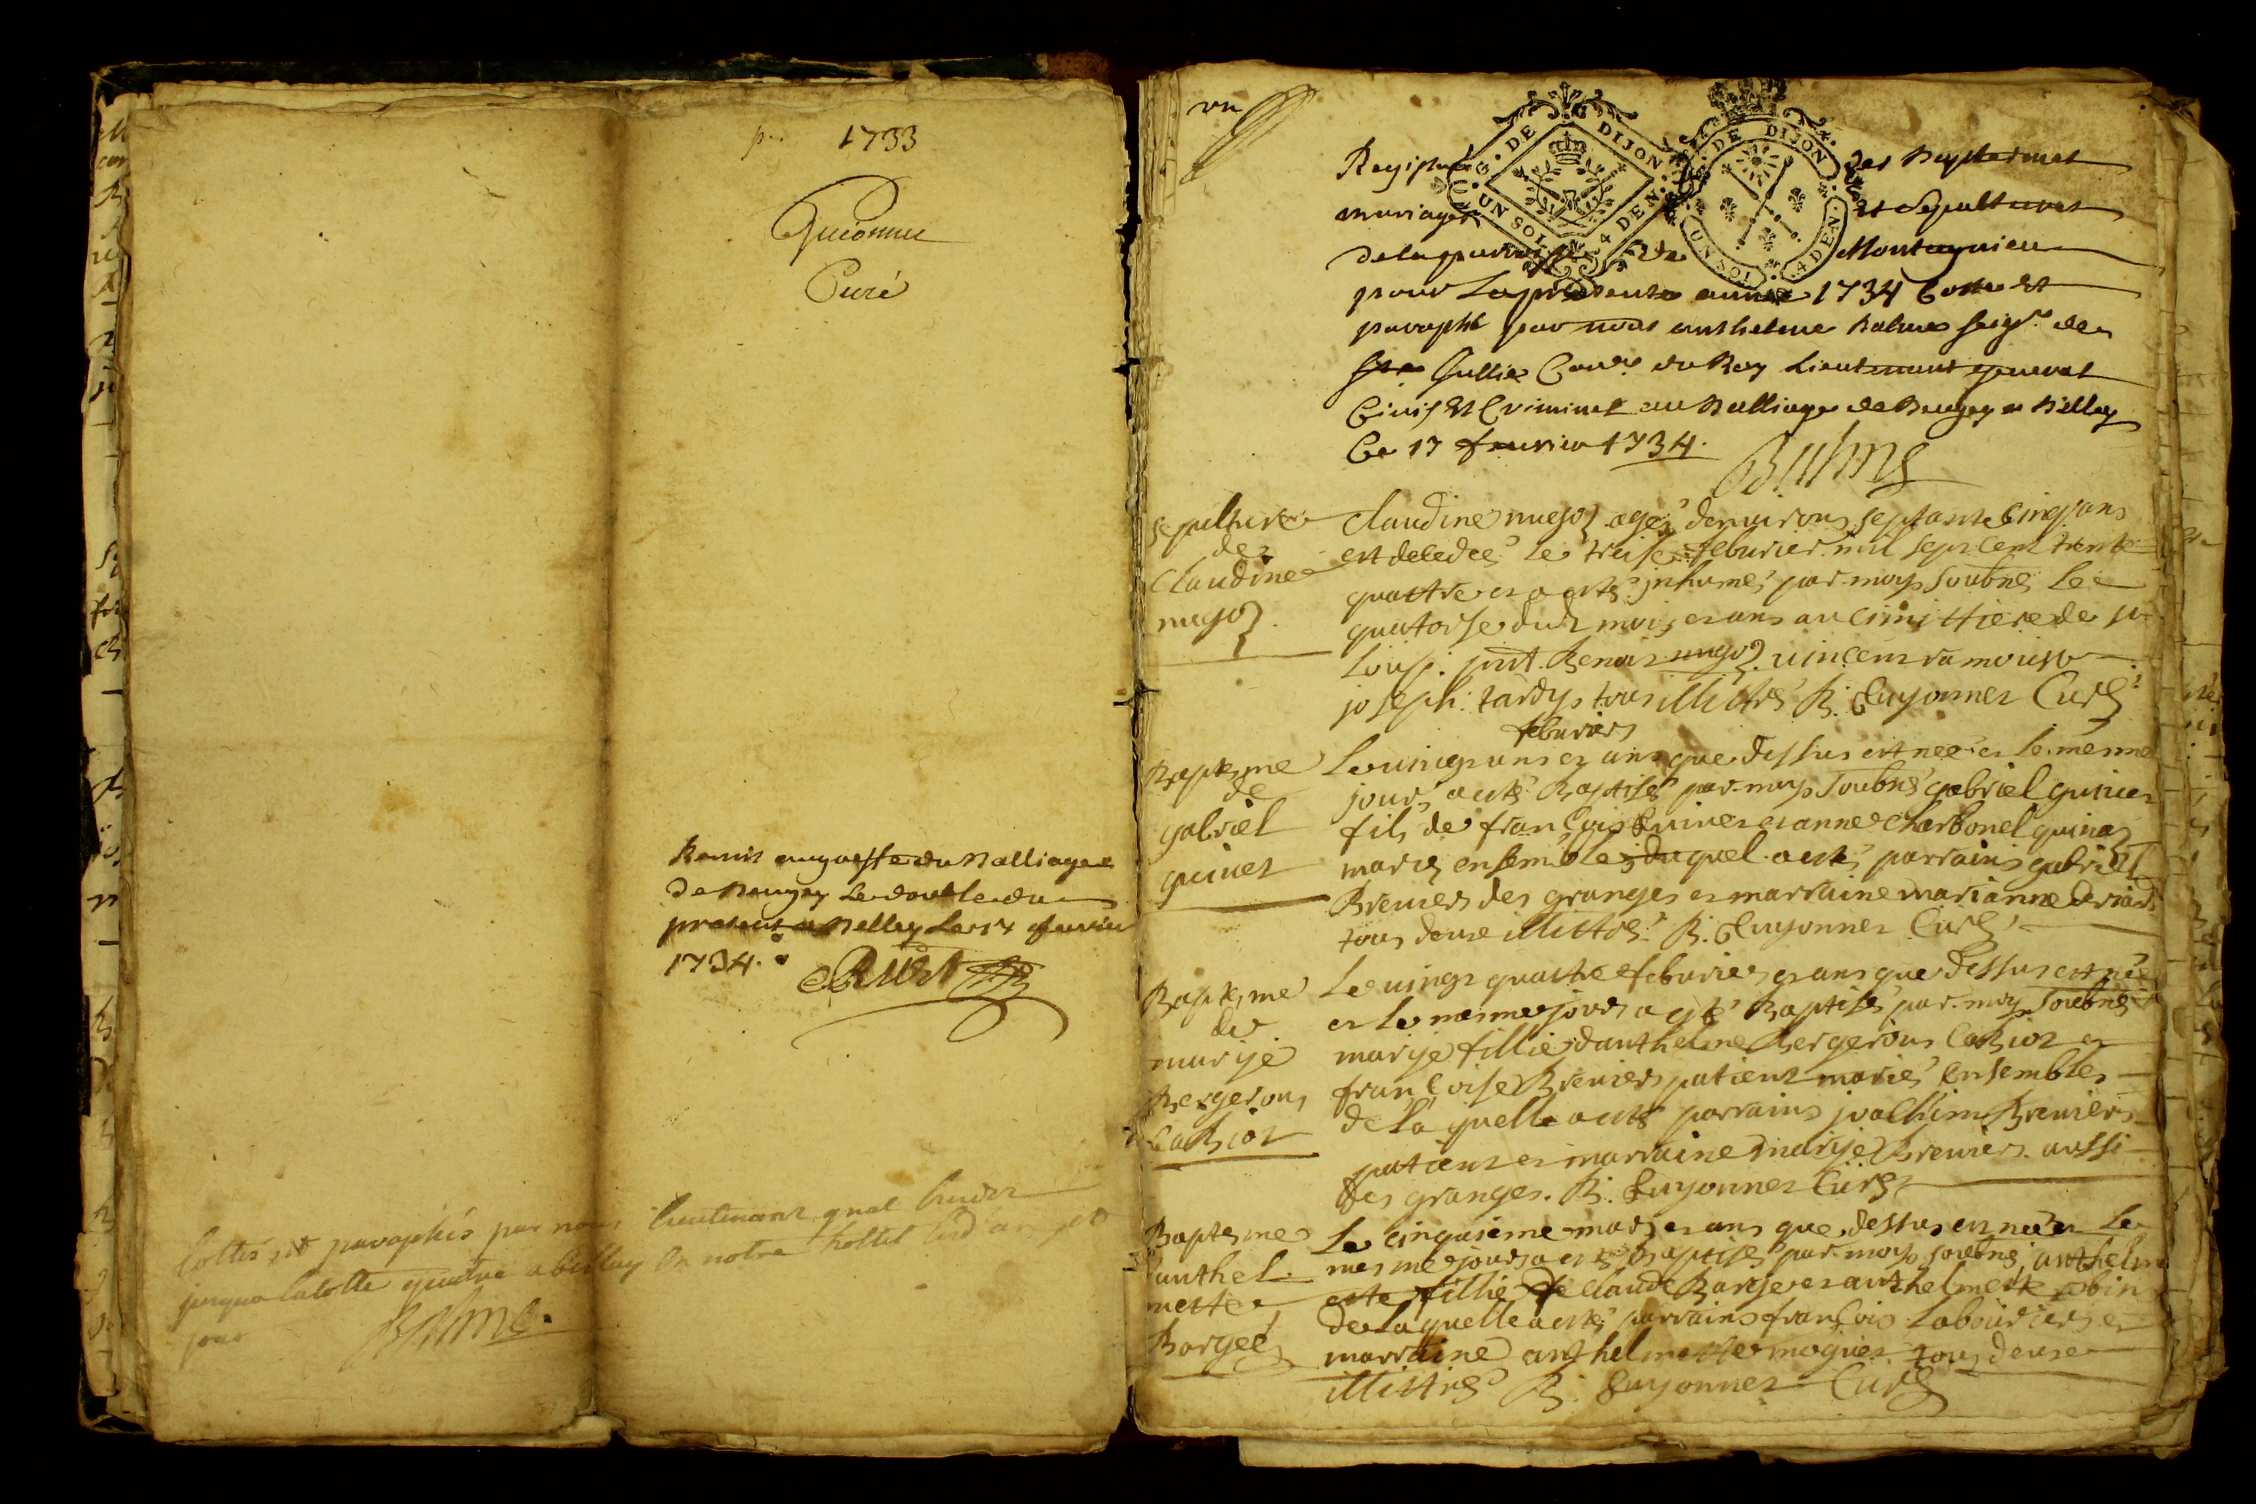 1733
Guionnet
Curé
Remis au greffe du Balliage
De Beugey Le double du
present a Belley Le 17 fevrier
1734.
Cottés et paraphés par nous lieutenant gnal
jusqua la cotte quatre a Belley En notre hostel
jour
Balme
un
GEN. DE DIJON
UN SOL 4 DEN.
DE DIJON
UN SOL 4 DEN.
Registre des Baptesmes
mariages Et Sepultures
de la parroisse de Montagnieu
pour La presente année 1734 Cotté Et
paraphé par nous anthelme Balme seigr. de
Ste Jullie Conr. du Roy Lieutenant general
Civil Et Criminel au Balliage de Beugey a Belley
Ce 17 fevrier 1734.
Balme
sepulture
de
Claudine
mugoz
Claudine mugoz agee denvirons septante cinq ans
est decedee le treise feburier mil sept cent trente
quattre et a esté inhumee par moy soubné le
quatorse dud mois et ans au cimittiere de
joseph tardy tous illittré B. Guyonnet Curé
Baptesme
de
gabriel
quinet
feburier
Le vingt uns et ans que dessus est nee et le mesme
jour a esté Baptisé par moy soubné gabriel quinet
fils de françois quinet et anne Charbonel quinaz
mariez ensemble duquel a esté parrains gabriel
Brenier des granges et marraine marianne
tous deux illittré B. Guyonnet Curé
Baptesme
de
marye
Bergerons
Le vingt quattre feburier et ans que dessus est née
et le mesme jour a esté Baptisé par moy soubné
marye fillie danthelme Bergerons et
françoise Brenier patient mariés ensembles
de la quelle a esté parrains joachim Brenier
patient et marraine marye Brenier aussi
des granges. B. Guyonnet Curé
Baptesme
danthel
mette
Borgeé
Le cinquieme mars et ans que dessus est née et le
mesme jour a esté Baptisé par moy soubné anthelm
ette fillie de Claude Borge et anthelmette
de la quelle a esté parrains françois et
marraine anthelmette tous deux
illittré B. Guyonnet Curé